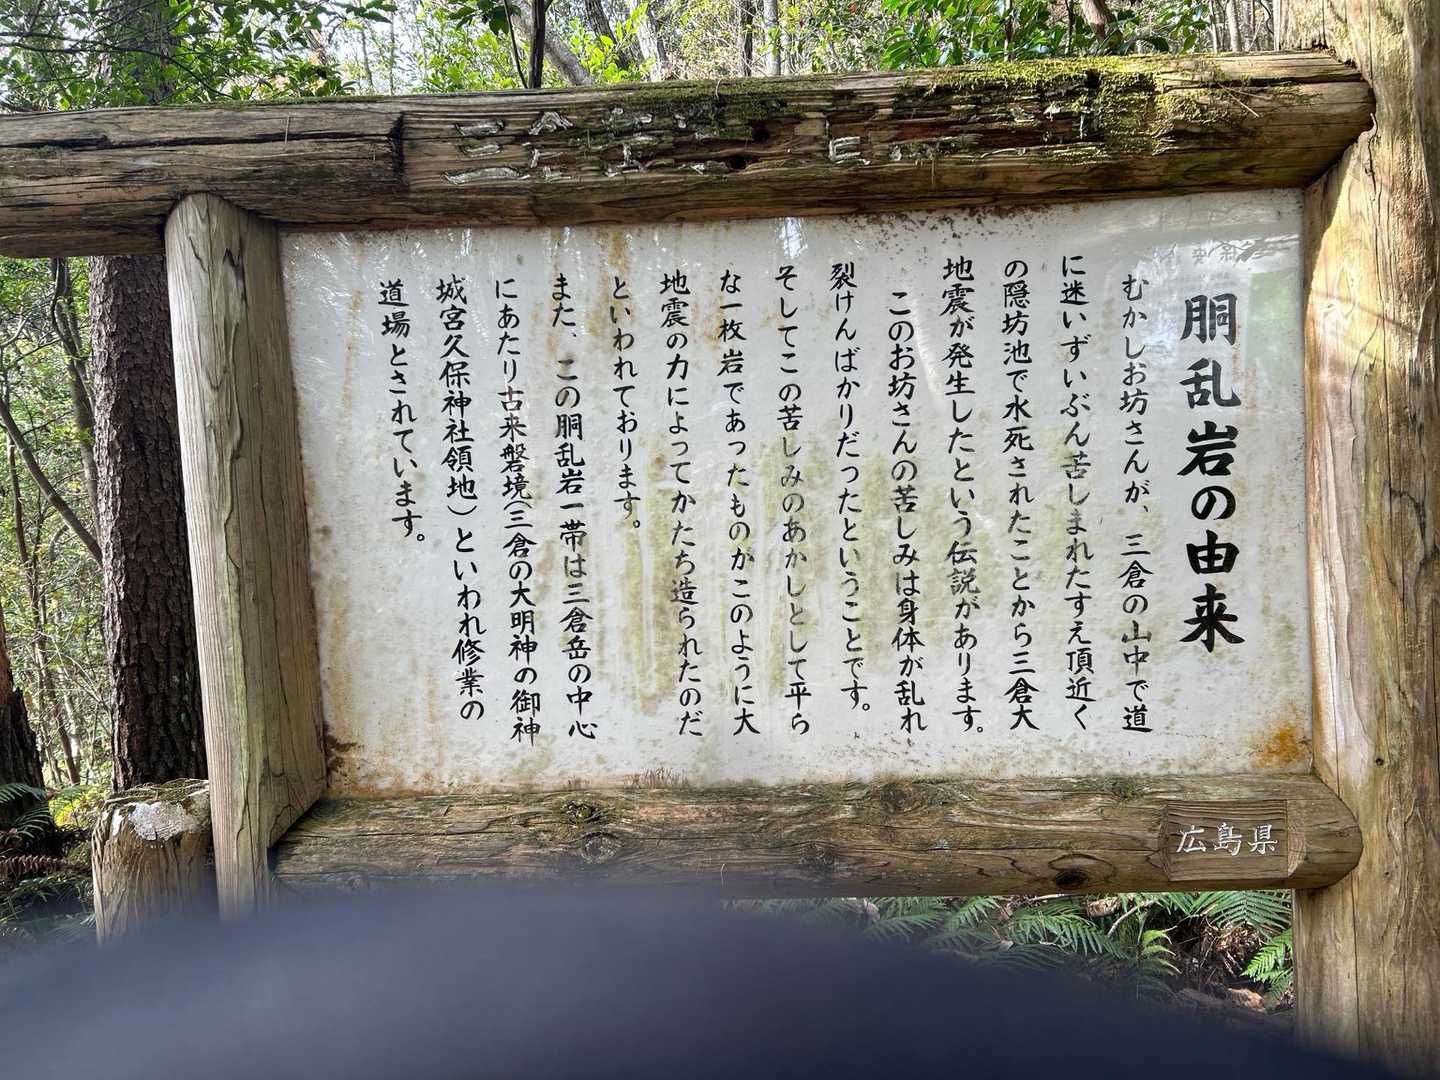 胴乱岩の由来
むかしお坊さんが、三倉の山中で道
に迷いずいぶん苦しまれたすえ頂近く
の隠坊池で水死されたことから三倉大
地震が発生したという伝説があります。
このお坊さんの苦しみは身体が乱れ
裂けんばかりだったということです。
そしてこの苦しみのあかしとして平ら
な一枚岩であったものがこのように大
地震の力によってかたち造られたのだ
といわれております。
また、この胴乱岩一帯は三倉岳の中心
にあたり古来磐境(三倉の大明神の御神
城宮久保神社領地)といわれ修業の
道場とされています。
広島県